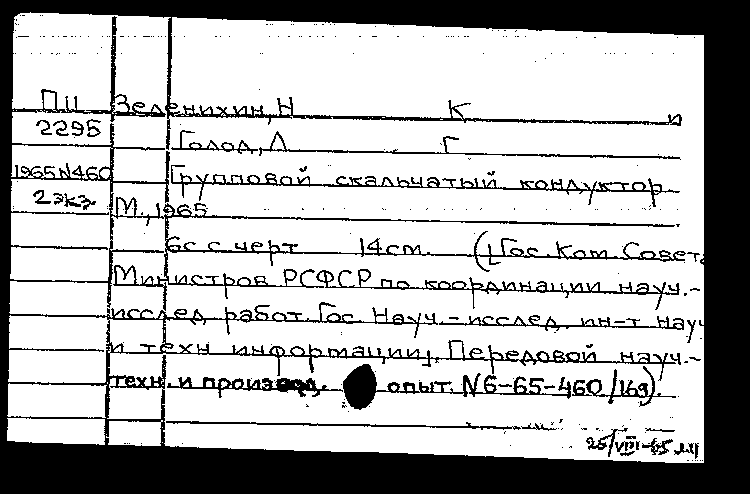 П11 Зеленихин, Н К и
2295 Голод, Л Г
1965N460 Групповой скальчатый кондуктор
2экз. М., 1965.
6с с черт 14см. ([Гос. Ком. Совета
Министров РСФСР по координации науч.-
исслед. работ. Гос. Науч.-исслед. ин-т науч
и техн информации]. Передовой науч.-
техн. и произвед. опыт. N6-65-460/169).
25/VIII-65